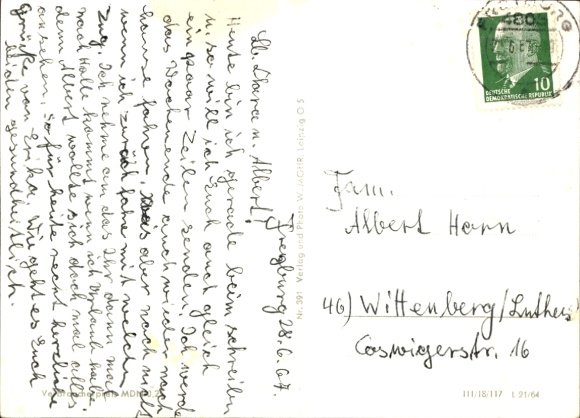 Freyburg 28.6.67.
Lb. Klara u. Albert!
Heute bin ich gerade beim schreiben
u. so will ich Euch auch gleich
ein paar Zeilen senden. Ich werde
das Wochenende auch wieder nach
hause fahren. Was aber noch nicht
wenn ich zurück fahre mit welchem
Zug. Ich nehme an das Ihr dann mal
nach Halle kommt wenn ich Urlaub habe.
dem Albert wollte sich doch mal alles
ansehen. So für heute recht herzliche
Grüße von Erika. Wie geht es Euch
beiden gesundheitlich.
Verbraucherpreis MDN 0,20
Nr. 391 Verlag und Photo W. MOHR, Leipzig O 5
FREYBURG
4805
10
DEUTSCHE
DEMOKRATISCHE REPUBLIK
Fam.
Albert Horn
46) Wittenberg/Luthers
Coswigerstr. 16
III/18/117 L 21/64